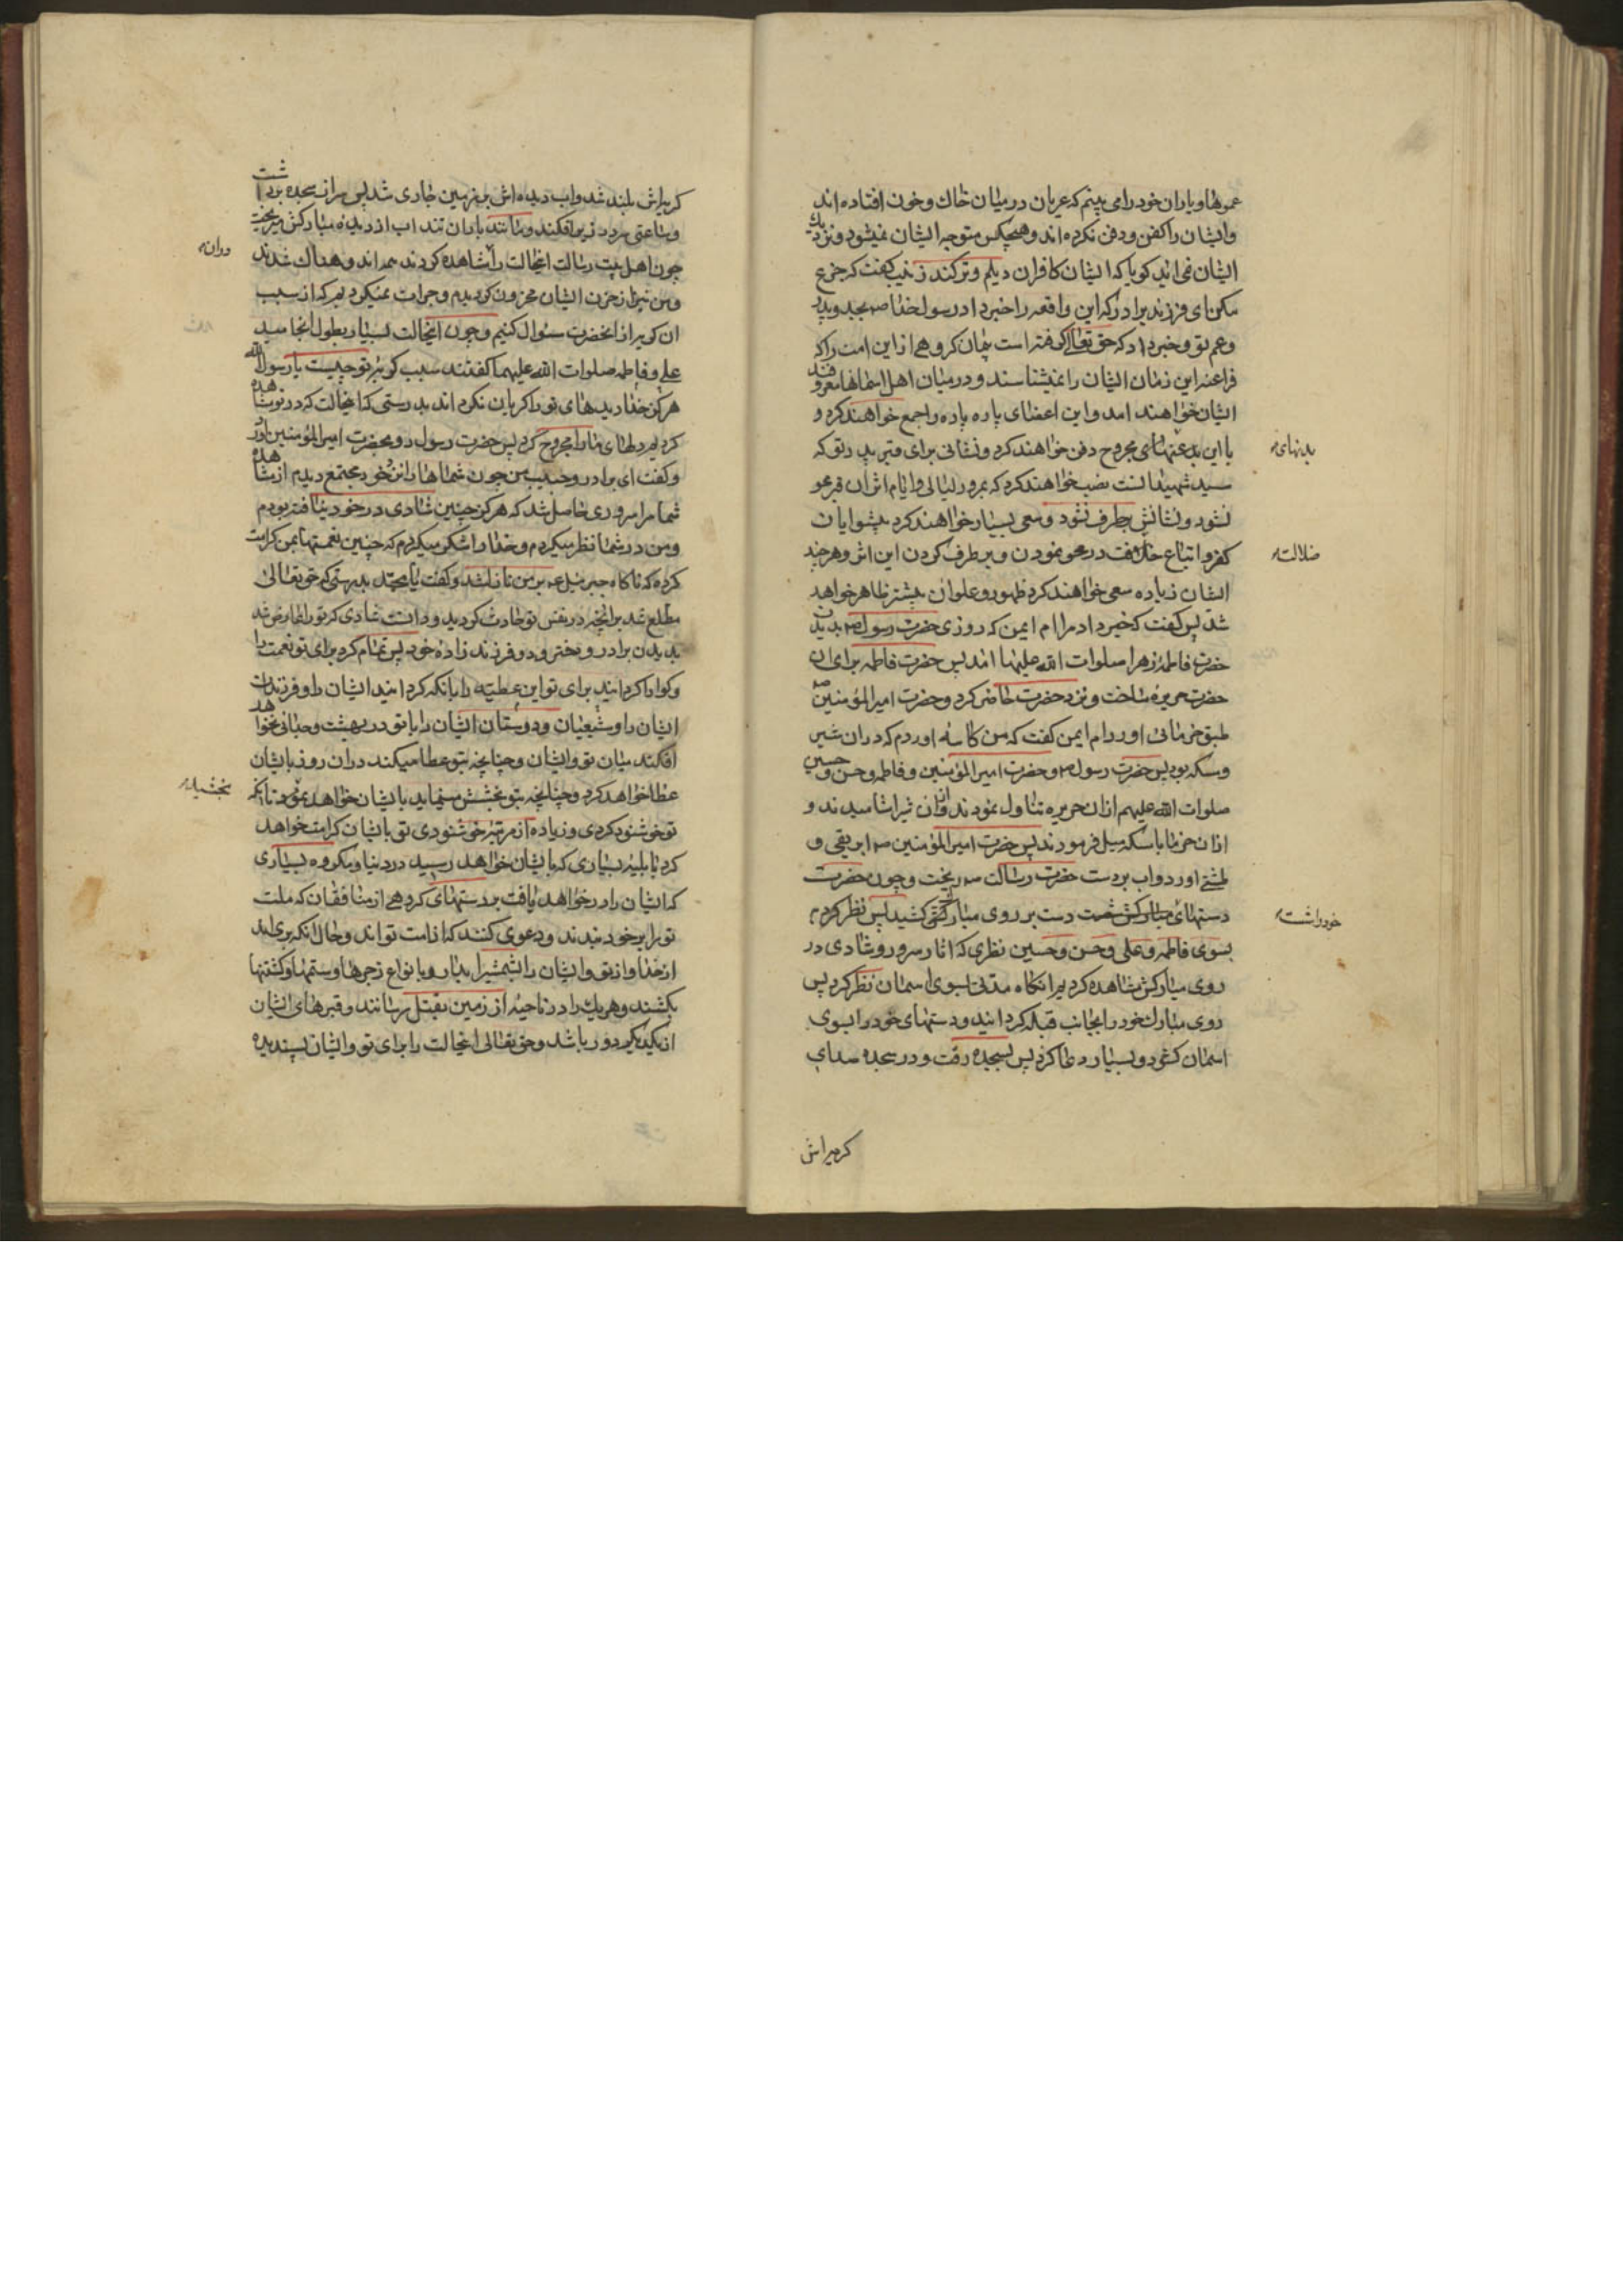 عموها و یاران خود را می بینم که عریان در میان خاک و خون افتاده اند
و ایشان را کفن و دفن نکرده اند و هیچکس متوجه ایشان نمیشود و نزدیک
ایشان نمی اید کویا که ایشان کافران دیلم و ترکند زینب کفت که جزع
مکن ای فرزند برادر که این واقعه را خبر داد رسول خدا ص بجد و پدر
و عم تو و خبر داد که حق تعالی کرفته است پیمان کروهی از این امت را که
فراعنه این زمان ایشان را نمیشناسند و در میان اهل اسمانها معروفند
ایشان خواهند امد و این اعضای پاره پاره را جمع خواهند کرد و
با این بدنهای مجروح دفن خواهند کرد و نشانی برای قبر پدر تو که
بدنهای
سید شهیدانست نصب خواهند کرد که بمرور لیالی و ایام اثر ان قبر محو
نشود و نشانش برطرف نشود و سعی بسیار خواهند کرد پیشوایان
کفر و اتباع ضلالت در محو نمودن و برطرف کردن این اثر و هر چند
ضلالت
ایشان زیاده سعی خواهند کرد ظهور و علو ان بیشتر ظاهر خواهد
شد پس کفت که خبر داد مرا ام ایمن که روزی حضرت رسول ص بدیدن
حضرت فاطمه زهرا صلوات الله علیها امد پس حضرت فاطمه برای ان
حضرت حریره ساخت و نزد حضرت حاضر کرد و حضرت امیر المؤمنین ص
طبق خرمائی اورد ام ایمن کفت که من کاسه اوردم که در ان شیر
و مسکه بود پس حضرت رسول ص و حضرت امیر المؤمنین و فاطمه و حسن و حسین
صلوات الله علیهم از ان حریره تناول نمودند و از ان شیر اشامیدند و
از ان خرما با مسکه میل فرمودند پس حضرت امیر المؤمنین ص ابریقی و
طشتی اورد و اب بر دست حضرت رسالت ص ریخت و چون حضرت
دستهای خود را شست دست بر روی مبارک کشید پس نظر کرد
خود را شست
بسوی فاطمه و علی و حسن و حسین نظری که اثار سرور و شادی در
روی مبارکش مشاهده کردیم انکاه مدتی بسوی اسمان نظر کرد پس
روی مبارک خود را بجانب قبله کردانید و دستهای خود را بسوی
اسمان کشود و بسیار دعا کرد پس بسجده رفت و در سجده صدای
کریه اش
کریه اش بلند شد و اب دیده اش بر زمین جاری شد پس سر از سجده برداشت
و ساعتی سر در زیر افکند و مانند باران تند اب از دیده مبارکش میریخت
چون اهل بیت رسالت انحالت را مشاهده کردند همه اندوهناک شدند
و من نیز از حزن ایشان محزون کردیدم و جرات نمیکردیم که از سبب
ان کریه از انحضرت سئوال کنیم و چون انحالت بسیار بطول انجامید
علی و فاطمه صلوات الله علیهما کفتند سبب کریه تو چیست یا رسول الله
هرکز خدا دیده های تو را کریان نکرداند بدرستی که انحالت که در تو مشاهده
کردیم دلهای ما را مجروح کرد پس حضرت رسول رو بحضرت امیر المؤمنین اورد
و کفت ای برادر و حبیب من چون شماها را نزد خود مجتمع دیدم از مشاهده
شما مرا سروری حاصل شد که هرکز چنین شادی در خود نیافته بودم
و من در شما نظر میکردم و خدا را شکر میکردم که چنین نعمتها بمن کرامت
کرده که ناکاه جبرئیل ع بر من نازل شد و کفت یا محمد بدرستی که حق تعالی
مطلع شد برانچه در نفس تو حادث کردید و دانست شادی که تو را عارض شد
بدیدن برادر و دختر و دو فرزند زاده خود پس تمام کرد برای تو نعمت را
و کوارا کردانید برای تو این عطیه را بانکه کردانید ایشان را و فرزندان
ایشان را و شیعیان و دوستان ایشان را با تو در بهشت و جدائی نخواهد
افکند میان تو و ایشان و چنانچه بتو عطا میکند در ان روز بایشان
عطا خواهد کرد و چنانچه بتو بخشش مینماید بایشان خواهد نمود تا انکه
بخشش
تو خوشنود کردی و زیاده از مرتبه خوشنودی تو بایشان کرامت خواهد
کرد با بلیه بسیاری که بایشان خواهد رسید در دنیا و مکروه بسیاری
که ایشان را در خواهد یافت بر دستهای کروهی از منافقان که ملت
تو را بر خود بندند و دعوی کنند که از امت تو اند و حال انکه بری اند
از خدا و از تو و ایشان را بشمشیر ابدار و بانواع زجرها و ستمها و کشتنها
بکشند و هر یک را در ناحیه از زمین بقتل رسانند و قبرهای ایشان
از یکدیکر دور باشد و حق تعالی انحالت را برای تو و ایشان پسندیده